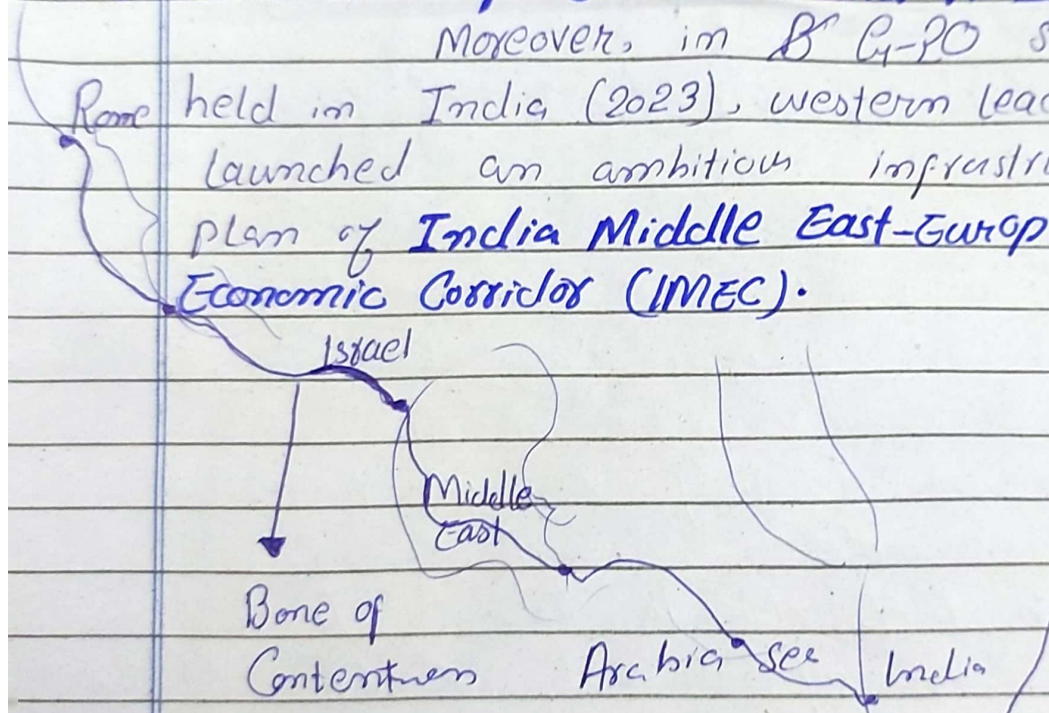 Moreover, in G-20 s
Rome held in India (2023), western lead
launched an ambitious infrastr
plan of India Middle East-Europ
Economic Corridor (IMEC).
Israel
Middle
East
Bone of
Contention
Arabia See India